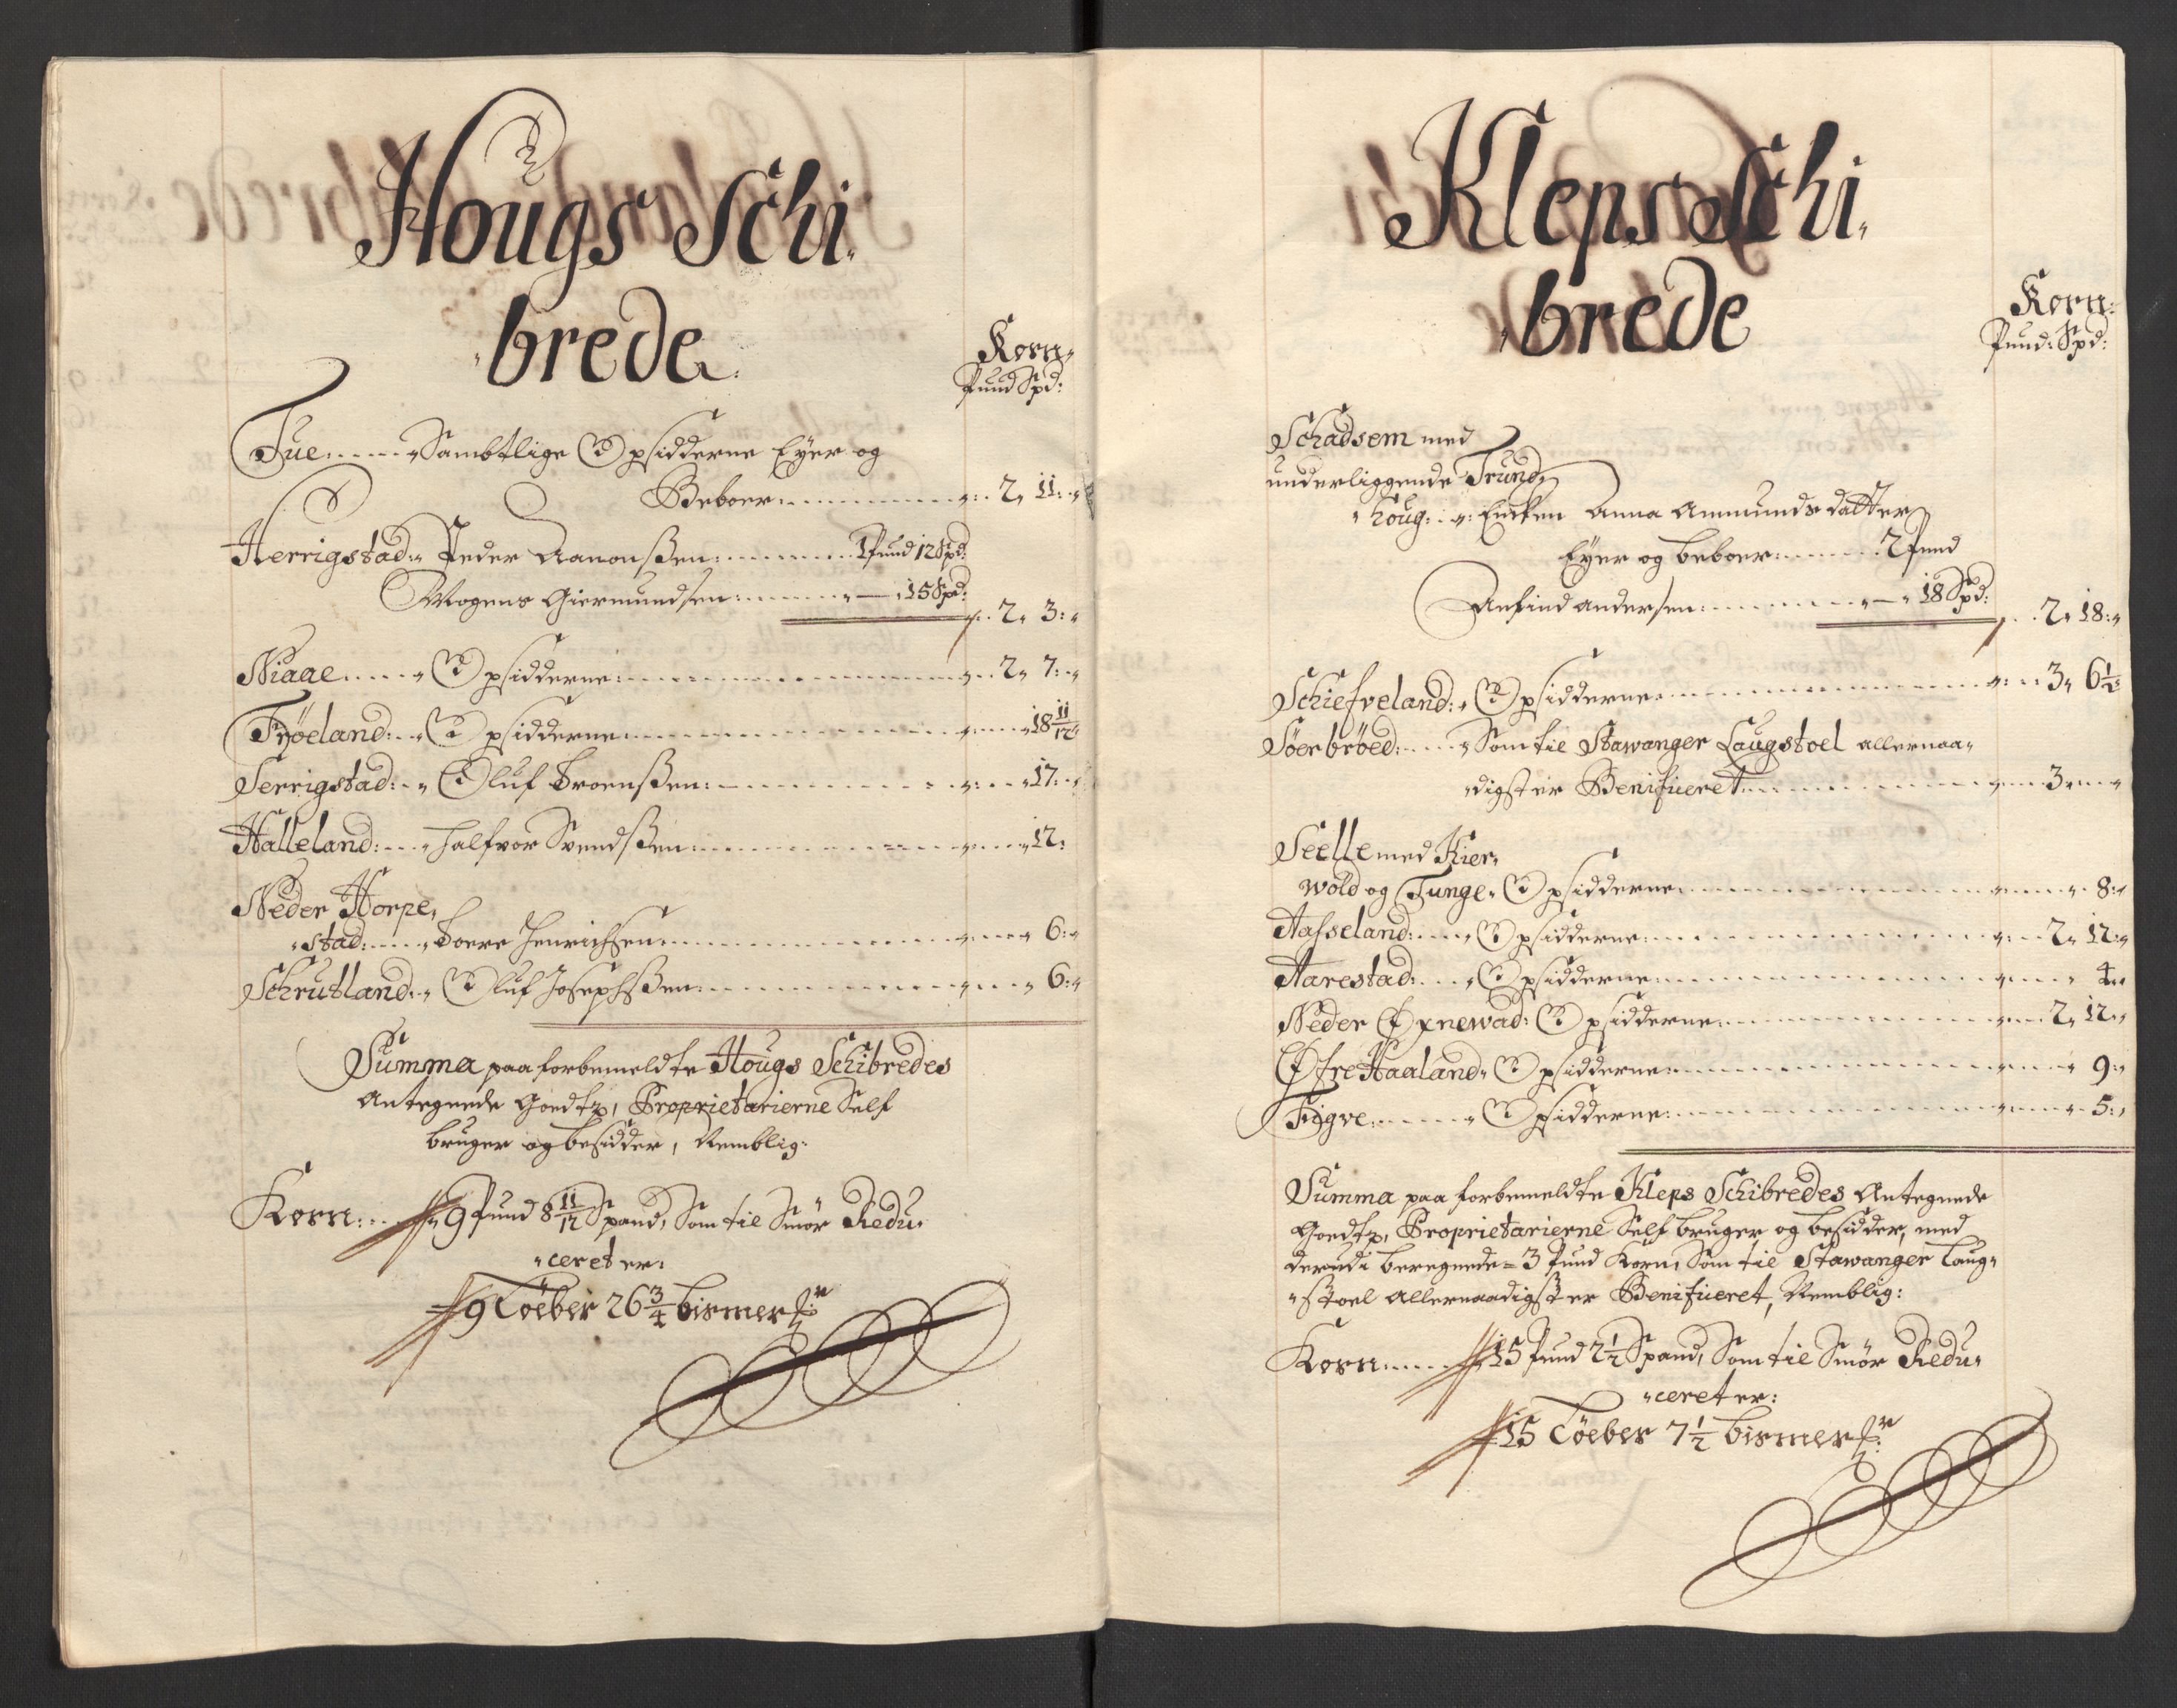 Hougs Schi„
„brede
Korn„
Pund Spd:
Tue:....„ Sambtlige Opsidderne Eyer og
Beboer:..........„:. 2„ 11:„
Herrigstad:„ Peder Aanonßen:........ 1 Pund 12 Spd:
Mogens Giermundsen:......„—„ 15 Spd:
„:. 2„ 3:„
Niaae.....„ Opsidderne:...............„:.. 2„ 7:.„
Fröeland:..„ Opsidderne...............„....„18 11/12„
Serrigstad:..„ Oluf Troenßen:..........„:...„17:.„
Halleland:...„ Halfvor Svendßen:..........„:...„12:
Neder Horpe„
„stad:....„ Toere Henrichsen:..........„:...„ 6:„
Schrutland:..„ Oluf Josephßen:..........„:...„ 6:„
Summa paa forbemeldte Hougs Schibredes
Antegnede Goedtz, Proprietarierne Self
bruger og besidder, Nemblig:
Korn:....„9 Pund 8 11/12 Spand, Som til Smör Redu„
„ceret er:
9 Löeber 26 3/4 bismer
Kleps Schi„
„brede
Korn:
Pund: Spd:
Schadsem med
underliggende Trund„
„houg:..„: Encken Anna Anmunds datter
Eyer og beboer:....... 2 Pund
Anfind andersen:........„—„ 18 Spd:
.. 2„ 18:„
Schiefveland:„ Opsidderne..............„:... 3„ 6 1/2„
Söerbröed:....„ Som til Stawanger Laugstoel allernaa„
„digst er Benificeret............„....3„...„
Seelle med Kier„
wold og Tunge„ Opsidderne............„....„ 8:„
Aasseland:....„ Opsidderne:............„:... 2„ 12:„
Aarestad:....„ Opsidderne:............„....„ 4:„
Neder Öxnewad: Opsidderne............„.... 2„ 12:„
Öfre Haaland„ Opsidderne............„....„ 9:„
Figve:.....„ Opsidderne:............„....„ 5:„
Summa paa forbemeldte Kleps Schibredes Antegnede
Goedtz, Proprietarierne Self bruger og besidder, med
derudi beregnede = 3 Pund Korn, Som til Stawanger Laug„
„stoel allernaadigst er Benificeret, Nemblig:
Korn:.....15 Pund 2 1/2 Spand, Som til Smör Redu„
„ceret er:
15 Löeber 7 1/2 bismer